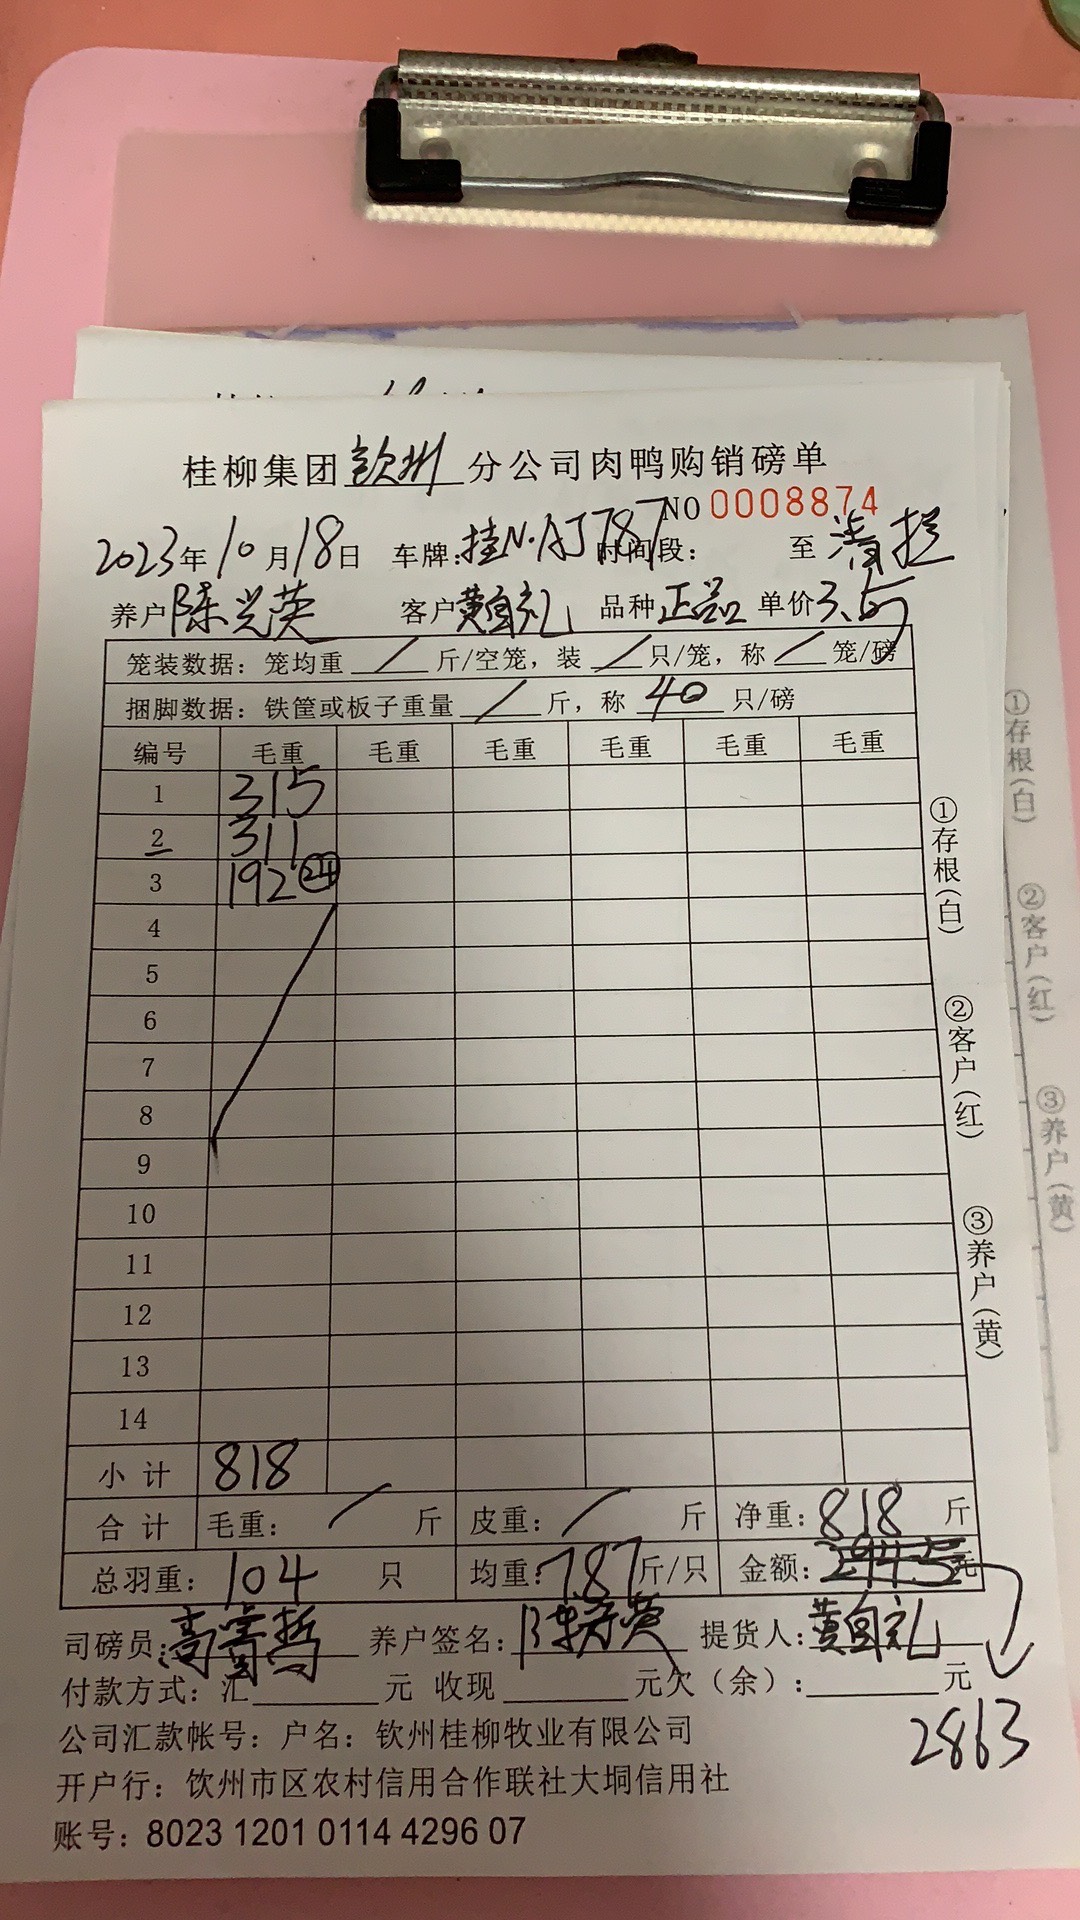 桂柳集团钦州分公司肉鸭购销磅单
NO 0008874
2023年10月18日 车牌:桂N·AJ787 时间段: 至 清栏
养户 陈兴英 客户 黄自礼 品种 正品 单价 3.5
笼装数据: 笼均重 / 斤/空笼, 装 / 只/笼, 称 / 笼/磅
捆脚数据: 铁筐或板子重量 / 斤, 称 40 只/磅
编号 毛重 毛重 毛重 毛重 毛重 毛重
1 315
2 311
3 192 24
4
5
6
7
8
9
10
11
12
13
14
小计 818
合计 毛重: / 斤 皮重: / 斤 净重: 818 斤
总羽重: 104 只 均重: 7.87 斤/只 金额: 元
司磅员: 养户签名: 提货人: 黄自礼
付款方式: 汇 元 收现 元欠(余): 元
2863
公司汇款帐号: 户名: 钦州桂柳牧业有限公司
开户行: 钦州市区农村信用合作联社大垌信用社
账号: 8023 1201 0114 4296 07
①存根(白) ②客户(红) ③养户(黄)
①存根(白) ②客户(红) ③养户(黄)